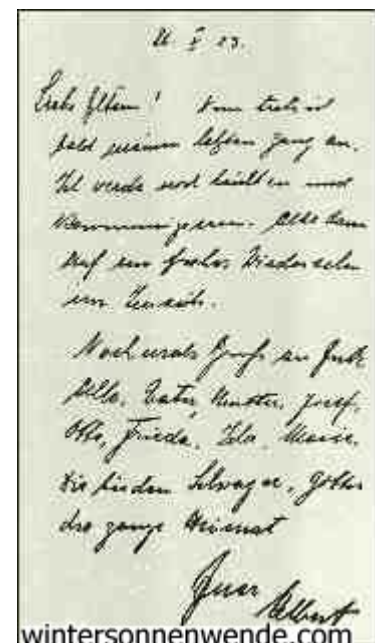 26. V. 23.
Liebe Eltern! Nun trete ich
bald meinen letzten Gang an.
Ich werde noch beichten und
kommunizieren. Also dann
auf ein frohes Wiedersehen
im Jenseits.
Nochmals Gruß an Euch
Alle, Vater, Mutter, Josef,
Otto, Frieda, Ida, Marie,
die beiden Schwager, Götte
die ganze Heimat
Euer Albert
wintersonnenwende.com